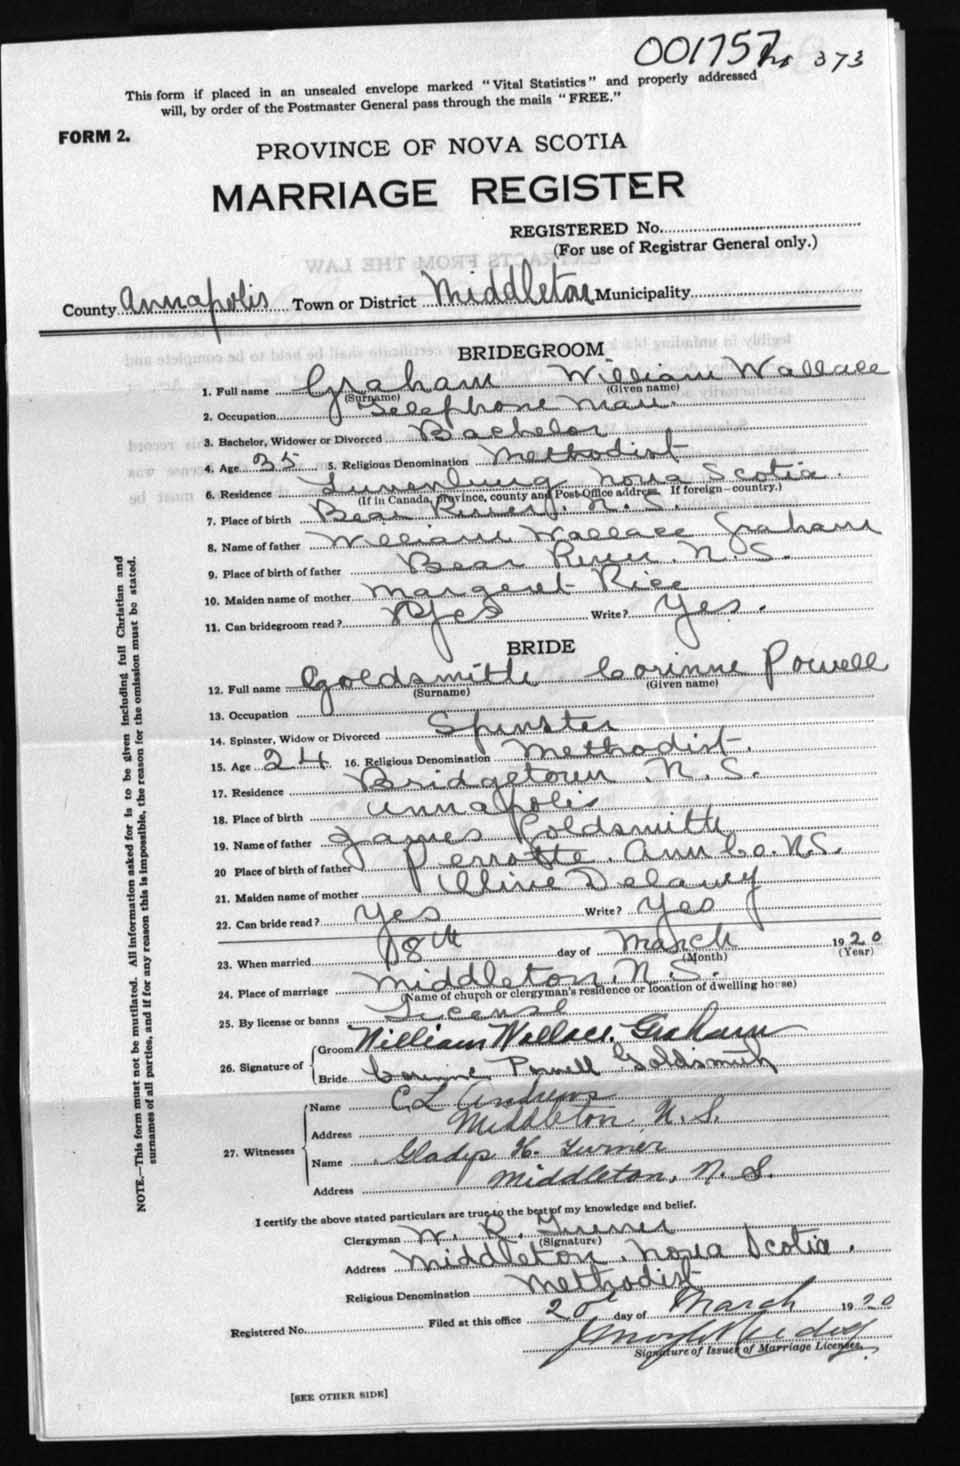 001757
No 373
This form if placed in an unsealed envelope marked "Vital Statistics" and properly addressed
will, by order of the Postmaster General pass through the mails "FREE."
FORM 2.
PROVINCE OF NOVA SCOTIA
MARRIAGE REGISTER
REGISTERED No.
(For use of Registrar General only.)
County Annapolis Town or District Middleton Municipality
BRIDEGROOM
1. Full name Graham William Wallace
(Surname) (Given name)
2. Occupation Telephone Man.
3. Bachelor, Widower or Divorced Bachelor
4. Age 35 5. Religious Denomination Methodist
6. Residence Lunenburg Nova Scotia.
(If in Canada, province, county and Post-Office address. If foreign-country.)
7. Place of birth Bear River, N. S.
8. Name of father William Wallace Graham
9. Place of birth of father Bear River N. S.
10. Maiden name of mother Margaret Rice
11. Can bridegroom read? Yes Write? Yes.
BRIDE
12. Full name Goldsmith Corinne Powell
(Surname) (Given name)
13. Occupation
14. Spinster, Widow or Divorced Spinster
15. Age 24 16. Religious Denomination Methodist.
17. Residence Bridgetown N. S.
18. Place of birth Annapolis
19. Name of father James Goldsmith
20 Place of birth of father Perrotte. Ann Co. N.S.
21. Maiden name of mother Olive Delaney
22. Can bride read? Yes Write? Yes
23. When married 18th day of March 1920
(Month) (Year)
24. Place of marriage Middleton N. S.
(Name of church or clergyman's residence or location of dwelling house)
25. By license or banns License
26. Signature of Groom William Wallace Graham
Bride Corinne Powell Goldsmith
27. Witnesses Name C L Andrews
Address Middleton N. S.
Name Gladys H. Turner
Address Middleton, N. S.
I certify the above stated particulars are true to the best of my knowledge and belief.
Clergyman W. R. Turner
(Signature)
Address Middleton. Nova Scotia.
Religious Denomination Methodist
Registered No. Filed at this office 20 day of March 1920
Signature of Issuer of Marriage Licenses.
[SEE OTHER SIDE]
NOTE.—This form must not be mutilated. All information asked for is to be given including full Christian and
surnames of all parties, and if for any reason this is impossible, the reason for the omission must be stated.